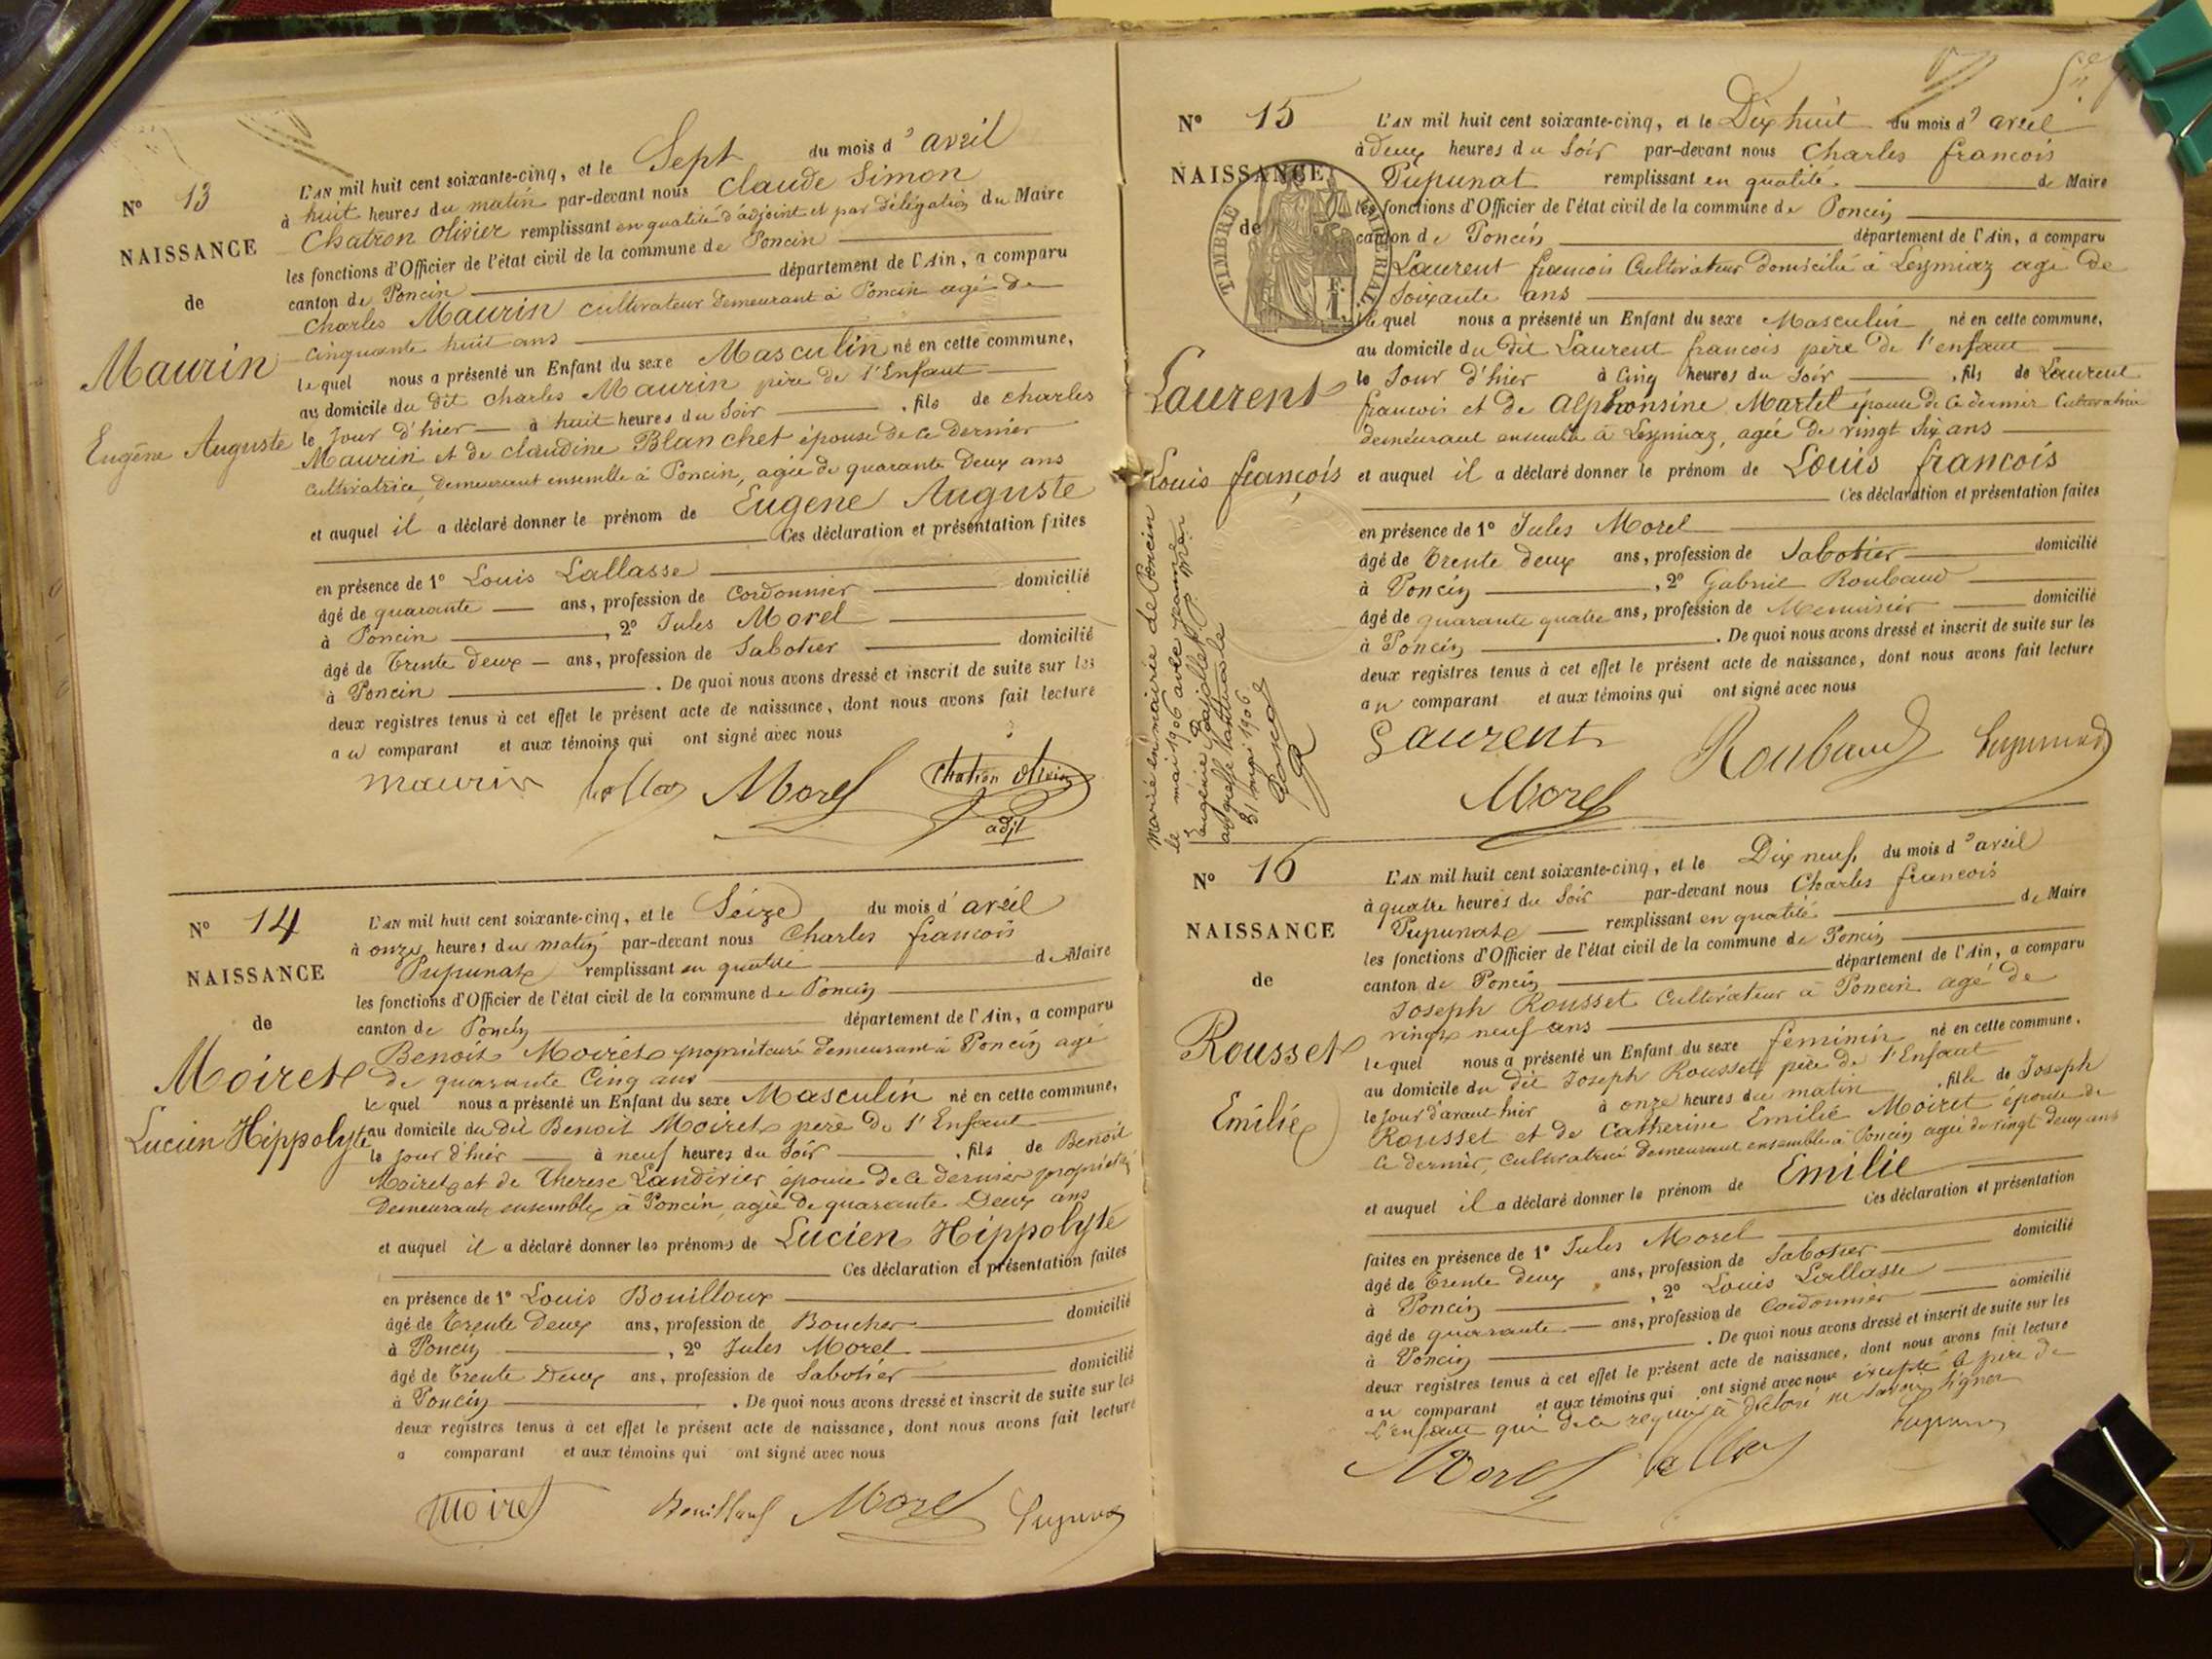 N° 13
NAISSANCE
de
Maurin
Eugène Auguste
L'AN mil huit cent soixante-cinq, et le Sept du mois d'avril
à huit heures du matin par-devant nous Claude Simon
Chatron Olivier remplissant en qualité d'adjoint et par délégation du Maire
les fonctions d'Officier de l'état civil de la commune de Poncin
canton de Poncin département de l'Ain, a comparu
Charles Maurin cultivateur demeurant à Poncin agé de
cinquante huit ans
lequel nous a présenté un Enfant du sexe Masculin né en cette commune,
au domicile du dit Charles Maurin père de l'Enfant
le Jour d'hier à huit heures du Soir, fils de Charles
Maurin et de Claudine Blanchet épouse de ce dernier
cultivatrice, demeurant ensemble à Poncin, agée de quarante deux ans
et auquel il a déclaré donner le prénom de Eugene Auguste
Ces déclaration et présentation faites
en présence de 1° Louis Lallasse
âgé de quarante ans, profession de Cordonnier domicilié
à Poncin, 2° Jules Morel
âgé de Trente deux ans, profession de Sabotier domicilié
à Poncin. De quoi nous avons dressé et inscrit de suite sur les
deux registres tenus à cet effet le présent acte de naissance, dont nous avons fait lecture
au comparant et aux témoins qui ont signé avec nous
Maurin Morel Chatron Olivier
adjt
N° 14
NAISSANCE
de
Moiret
Lucien Hippolyte
L'AN mil huit cent soixante-cinq, et le Seize du mois d'avril
à onze heures du matin par-devant nous Charles francois
Pupunat remplissant en qualité de Maire
les fonctions d'Officier de l'état civil de la commune de Poncin
canton de Poncin département de l'Ain, a comparu
Benoit Moiret propriétaire demeurant à Poncin agé
de quarante Cinq ans
lequel nous a présenté un Enfant du sexe Masculin né en cette commune,
au domicile du dit Benoit Moiret père de l'Enfant
le jour d'hier à neuf heures du Soir, fils de Benoit
Moiret et de Therese Landirier épouse de ce dernier propriétés
demeurant ensemble à Poncin, agée de quarante Deux ans
et auquel il a déclaré donner les prénoms de Lucien Hippolyte
Ces déclaration et présentation faites
en présence de 1° Louis Bouilloux
âgé de Trente deux ans, profession de Boucher domicilié
à Poncin, 2° Jules Morel
âgé de Trente Deux ans, profession de Sabotier domicilié
à Poncin. De quoi nous avons dressé et inscrit de suite sur les
deux registres tenus à cet effet le présent acte de naissance, dont nous avons fait lecture
a comparant et aux témoins qui ont signé avec nous
Moiret Bouilloux Morel Pupunat
N° 15
NAISSANCE
de
TIMBRE IMPERIAL
Laurent
Louis françois
Marié en mairie de Poncin
le mai 1906 avec Jeanne
Eugénie
au greffe
31 mai 1906
L'AN mil huit cent soixante-cinq, et le Dix huit du mois d'avril
à deux heures du Soir par-devant nous Charles francois
Pupunat remplissant en qualité de Maire
les fonctions d'Officier de l'état civil de la commune de Poncin
canton de Poncin département de l'Ain, a comparu
Laurent francois Cultivateur domicilié à Leymiaz agé de
Soixante ans
lequel nous a présenté un Enfant du sexe Masculin né en cette commune,
au domicile du dit Laurent francois père de l'enfant
le Jour d'hier à Cinq heures du Soir, fils de Laurent
francois et de Alphonsine Martel épouse de ce dernier Cultivatrice
demeurant ensemble à Leymiaz, agée de vingt Six ans
et auquel il a déclaré donner le prénom de Louis francois
Ces déclaration et présentation faites
en présence de 1° Jules Morel
âgé de Trente deux ans, profession de Sabotier domicilié
à Poncin, 2° Gabriel Roubaud
âgé de quarante quatre ans, profession de Menuisier domicilié
à Poncin. De quoi nous avons dressé et inscrit de suite sur les
deux registres tenus à cet effet le présent acte de naissance, dont nous avons fait lecture
au comparant et aux témoins qui ont signé avec nous
Laurent Roubaud Pupunat
Morel
N° 16
NAISSANCE
de
Rousset
Emilie
L'AN mil huit cent soixante-cinq, et le Dix neuf du mois d'avril
à quatre heures du Soir par-devant nous Charles francois
Pupunat remplissant en qualité de Maire
les fonctions d'Officier de l'état civil de la commune de Poncin
canton de Poncin département de l'Ain, a comparu
Joseph Rousset Cultivateur à Poncin agé de
vingt neuf ans
lequel nous a présenté un Enfant du sexe feminin né en cette commune,
au domicile du dit Joseph Rousset père de l'Enfant
le Jour d'avant hier à onze heures du matin, fille de Joseph
Rousset et de Catherine Emilie Moiret épouse de
ce dernier, cultivatrice demeurant ensemble à Poncin agée de vingt deux ans
et auquel il a déclaré donner le prénom de Emilie
Ces déclaration et présentation
faites en présence de 1° Jules Morel
âgé de Trente deux ans, profession de Sabotier domicilié
à Poncin, 2° Louis Lallasse
âgé de quarante ans, profession de Cordonnier domicilié
à Poncin. De quoi nous avons dressé et inscrit de suite sur les
deux registres tenus à cet effet le présent acte de naissance, dont nous avons fait lecture
au comparant et aux témoins qui ont signé avec nous excepté le père de
l'enfant qui de ce requis à déclaré ne savoir Signer
Morel Pupunat